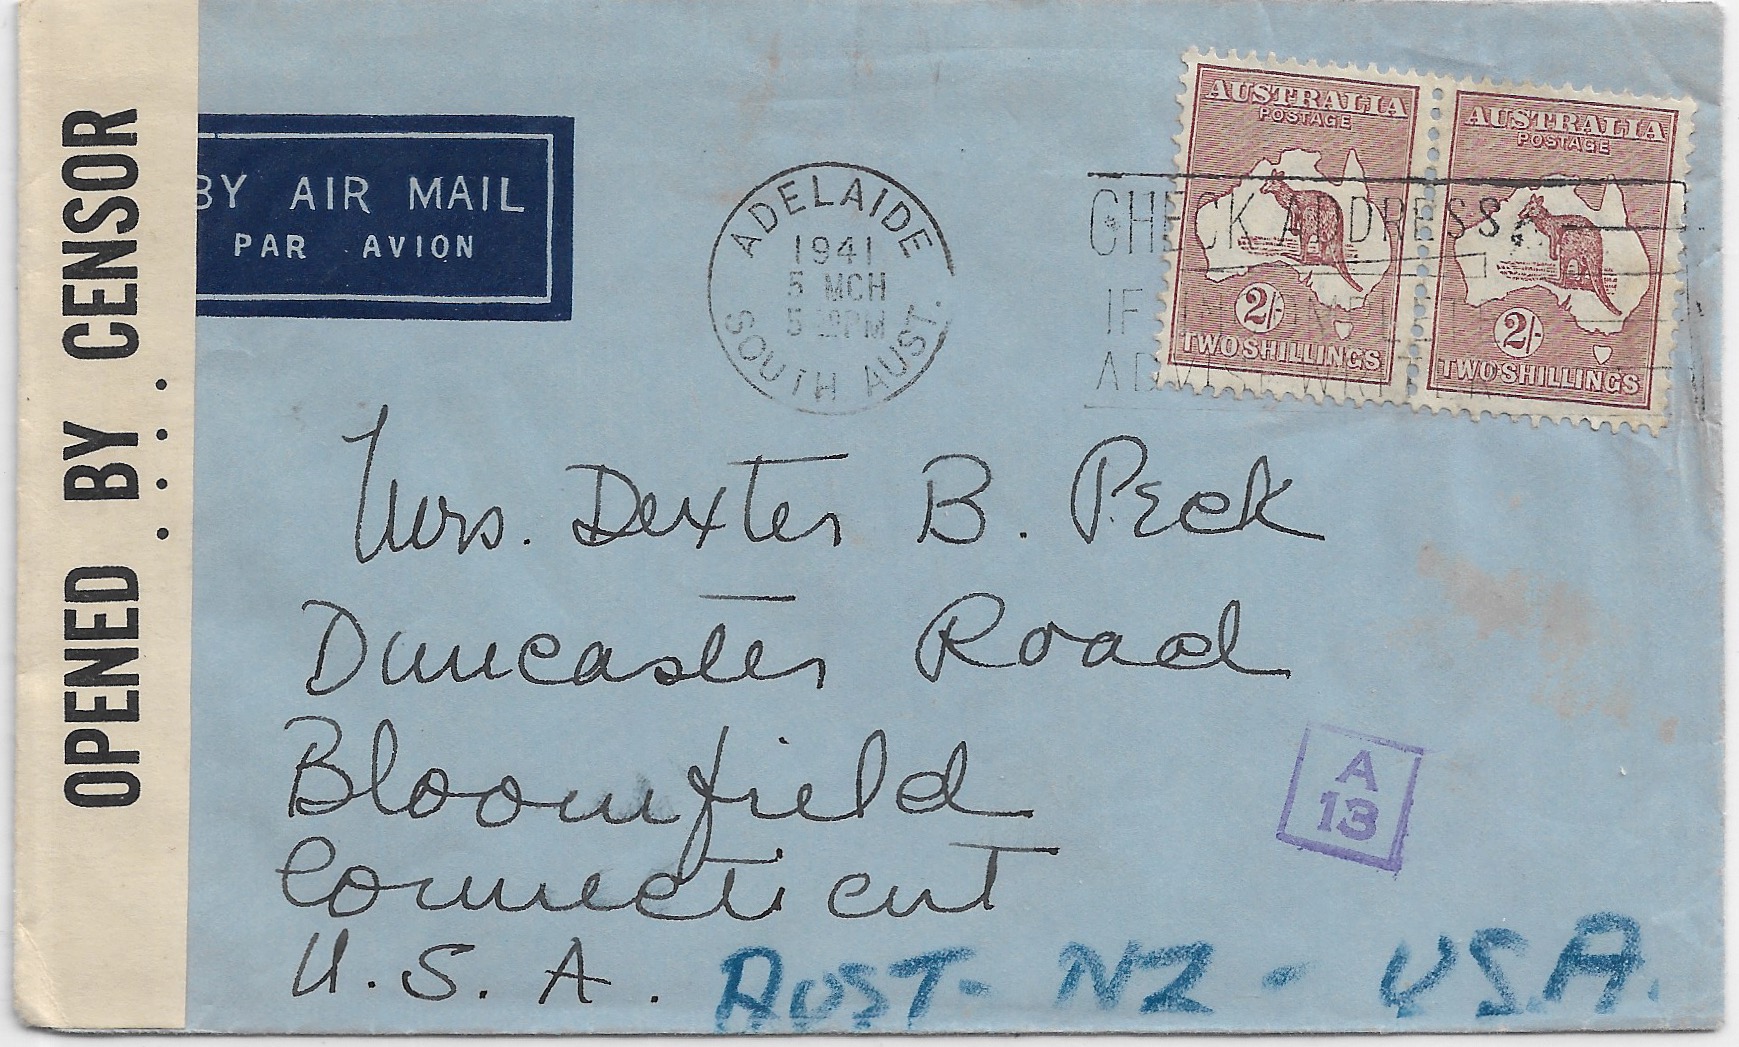 OPENED BY CENSOR
BY AIR MAIL
PAR AVION
ADELAIDE
1941
5 MCH
PM
SOUTH AUST.
CHECK ADDRESS
IF
AUSTRALIA
POSTAGE
2/-
TWO SHILLINGS
AUSTRALIA
POSTAGE
2/-
TWO SHILLINGS
Mrs. Dexter B. Peck
Duncaster Road
Bloomfield
Connecticut
U.S.A.
A
13
AUST - NZ - USA.